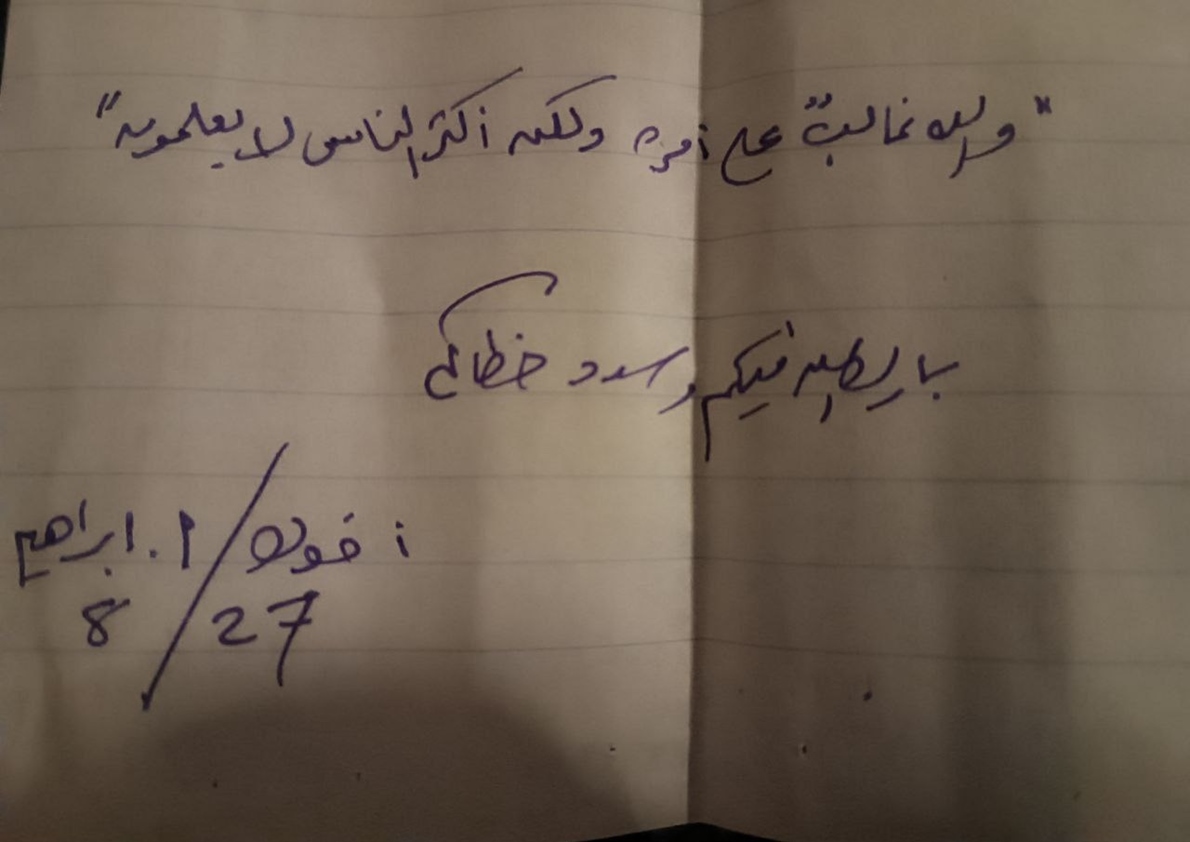 "والله غالبٌ على أمره ولكن أكثر الناس لا يعلمون"
بارك الله فيكم وسدد خطاكم
أخوكم / أ. ابراهيم
27 / 8